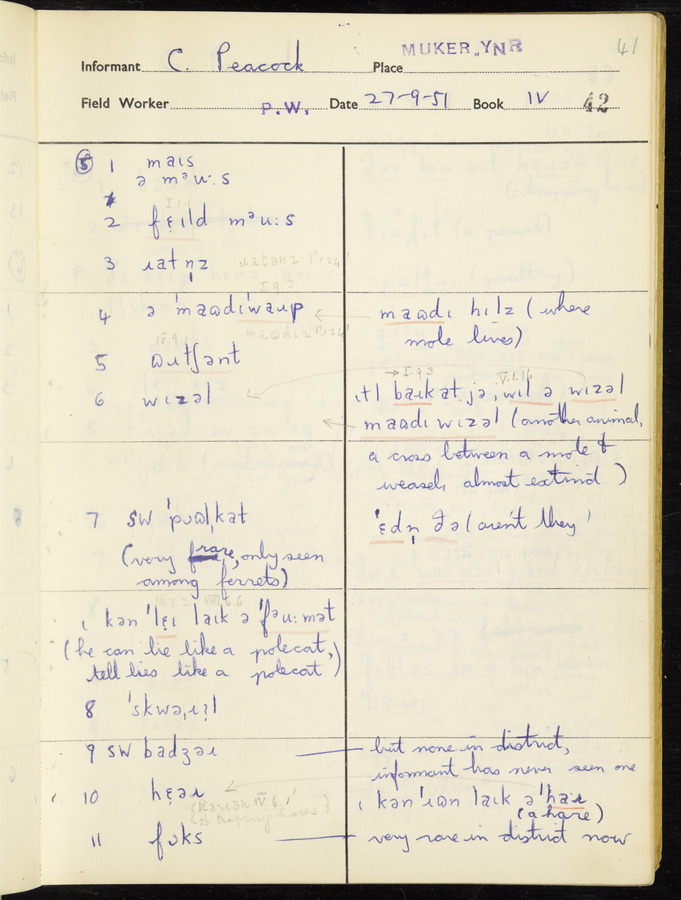 41
Informant C. Peacock Place MUKER.YNR
Field Worker P.W. Date 27-9-51 Book IV 42
⑤ 1 maɪs
ə mᵊu:s
2 fɛɪld mᵊu:s
I.1.1
3 ɹatn̩z
I.9.3
4 ə ˈmaɷdɪˈwaɹp
maɷdɪ hɪlz (where
mole lives)
5
6 wɪzəl
→I.9.3 V.1.16
wɪl ə wɪzəl
maɷdɪ wɪzəl (another animal,
a cross between a mole &
weasel, almost extinct)
7 SW
(very rare, only seen
among ferrets)
ˈɛdn̩ ðə (aren't they)
ɪ kən ˈlɛɪ laɪk ə ˈfᵊu:mət
(he can lie like a polecat,
tell lies like a polecat)
8
9 SW badʒəɹ
but none in district,
informant has never seen one
10 hɛəɹ
ɪ kən ˈɹɷn laɪk ə ˈhaɹ
(a hare)
11 fɔks
very rare in district now